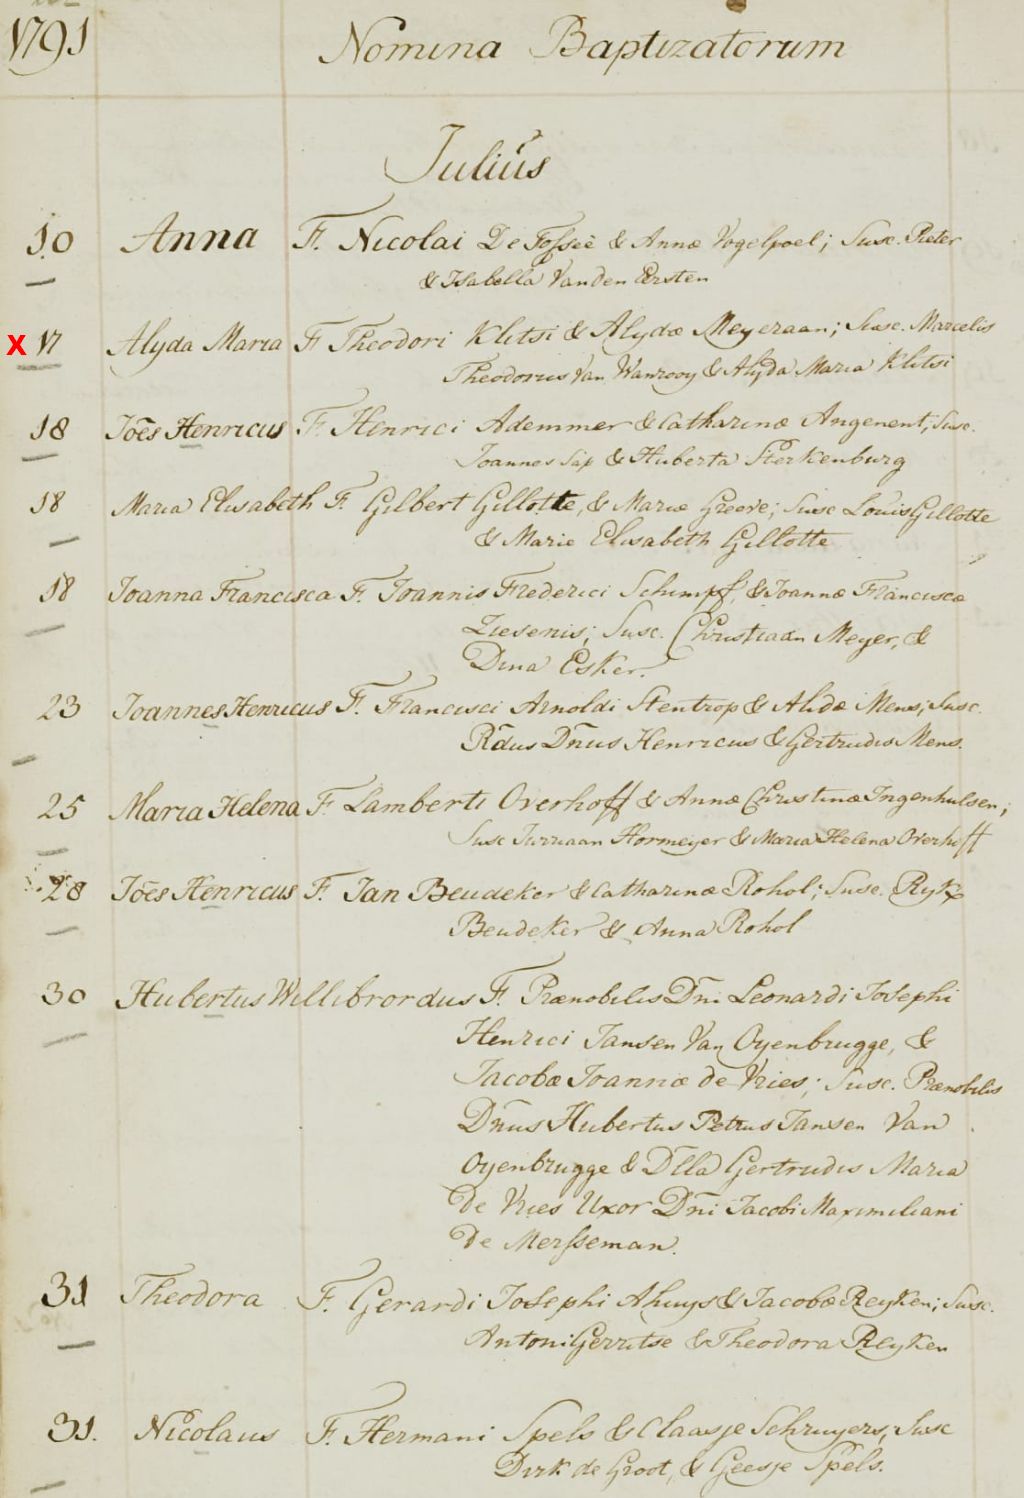 1791 Nomina Baptizatorum
Julius
10 Anna F. Nicolai De Fossee & Annæ Vogelpoel; Susc. Pieter
& Isabella Vanden Ersten
X 17 Alyda Maria F Theodori Klitsi & Alydæ Meyeraan; Susc. Marcelis
Theodorus Van Wanrooy & Alyda Maria Klitsi
18 Joēs Henricus F. Henrici Ademmer & Catharinæ Angenent; Susc.
Joannes Sap & Huberta Sterkenburg
18 Maria Elisabeth F. Gilbert Gillotte, & Mariæ Greeve; Susc Louis Gillotte
& Marie Elisabeth Gillotte
18 Joanna Francisca F. Joannis Frederici Schimpf, & Joannæ Franciscæ
Ziesenis; Susc. Christiaan Meyer, &
Dina Esker.
23 Joannes Henricus F. Francisci Arnoldi Stentrop & Alidæ Mens; Susc.
Rd̄us Dn̄us Henricus & Gertrudis Mens.
25 Maria Helena F. Lamberti Overhoff & Annæ Christinæ Ingenhulsen;
Susc Jurriaan Hormeyer & Maria Helena Overhoff
28 Joēs Henricus F. Jan Beudeker & Catharinæ Rohol; Susc. Ryk
Beudeker & Anna Rohol
30 Hubertus Willibrordus F. Prænobilis Dn̄i Leonardi Josephi
Henrici Jansen Van Oyenbrugge, &
Jacobæ Joannæ de Vries; Susc. Prænobilis
Dn̄us Hubertus Petrus Jansen Van
Oyenbrugge & D̄lla Gertrudis Maria
de Vries Uxor Dn̄i Jacobi Maximiliani
de Mersseman.
31 Theodora F. Gerardi Josephi Ahuys & Jacobæ Reyken; Susc.
Antoni Gerritse & Theodora Reyken
31. Nicolaus F. Hermani Spels & Claasje Schruyers; Susc
Dirk de Groot, & Geesje Spels.